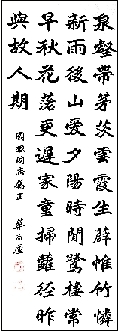 泉壑帶茅茨雲霞生薜帷竹憐
新雨後山愛夕陽時閒鷺棲常
早秋花落更遲家童掃蘿徑昨
與故人期